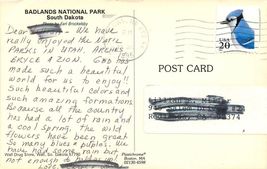 BADLANDS NATIONAL PARK
South Dakota
Photo by Earl Brockelsby
Dear
We have
really enjoyed the Nat'l
Parks in Utah, Arches
Bryce & Zion. God has
made such a beautiful
world for us to enjoy!!
Such beautiful colors and
such amazing formations.
Because all the country
has had a lot of rain and
a cool spring, the wild
flowers have been great.
So many blues & purples. We
have had some rain but
not enough to
Wall Drug Store, Wall, So. Dakota 57790
Boston, MA
USA
20
POST CARD
374